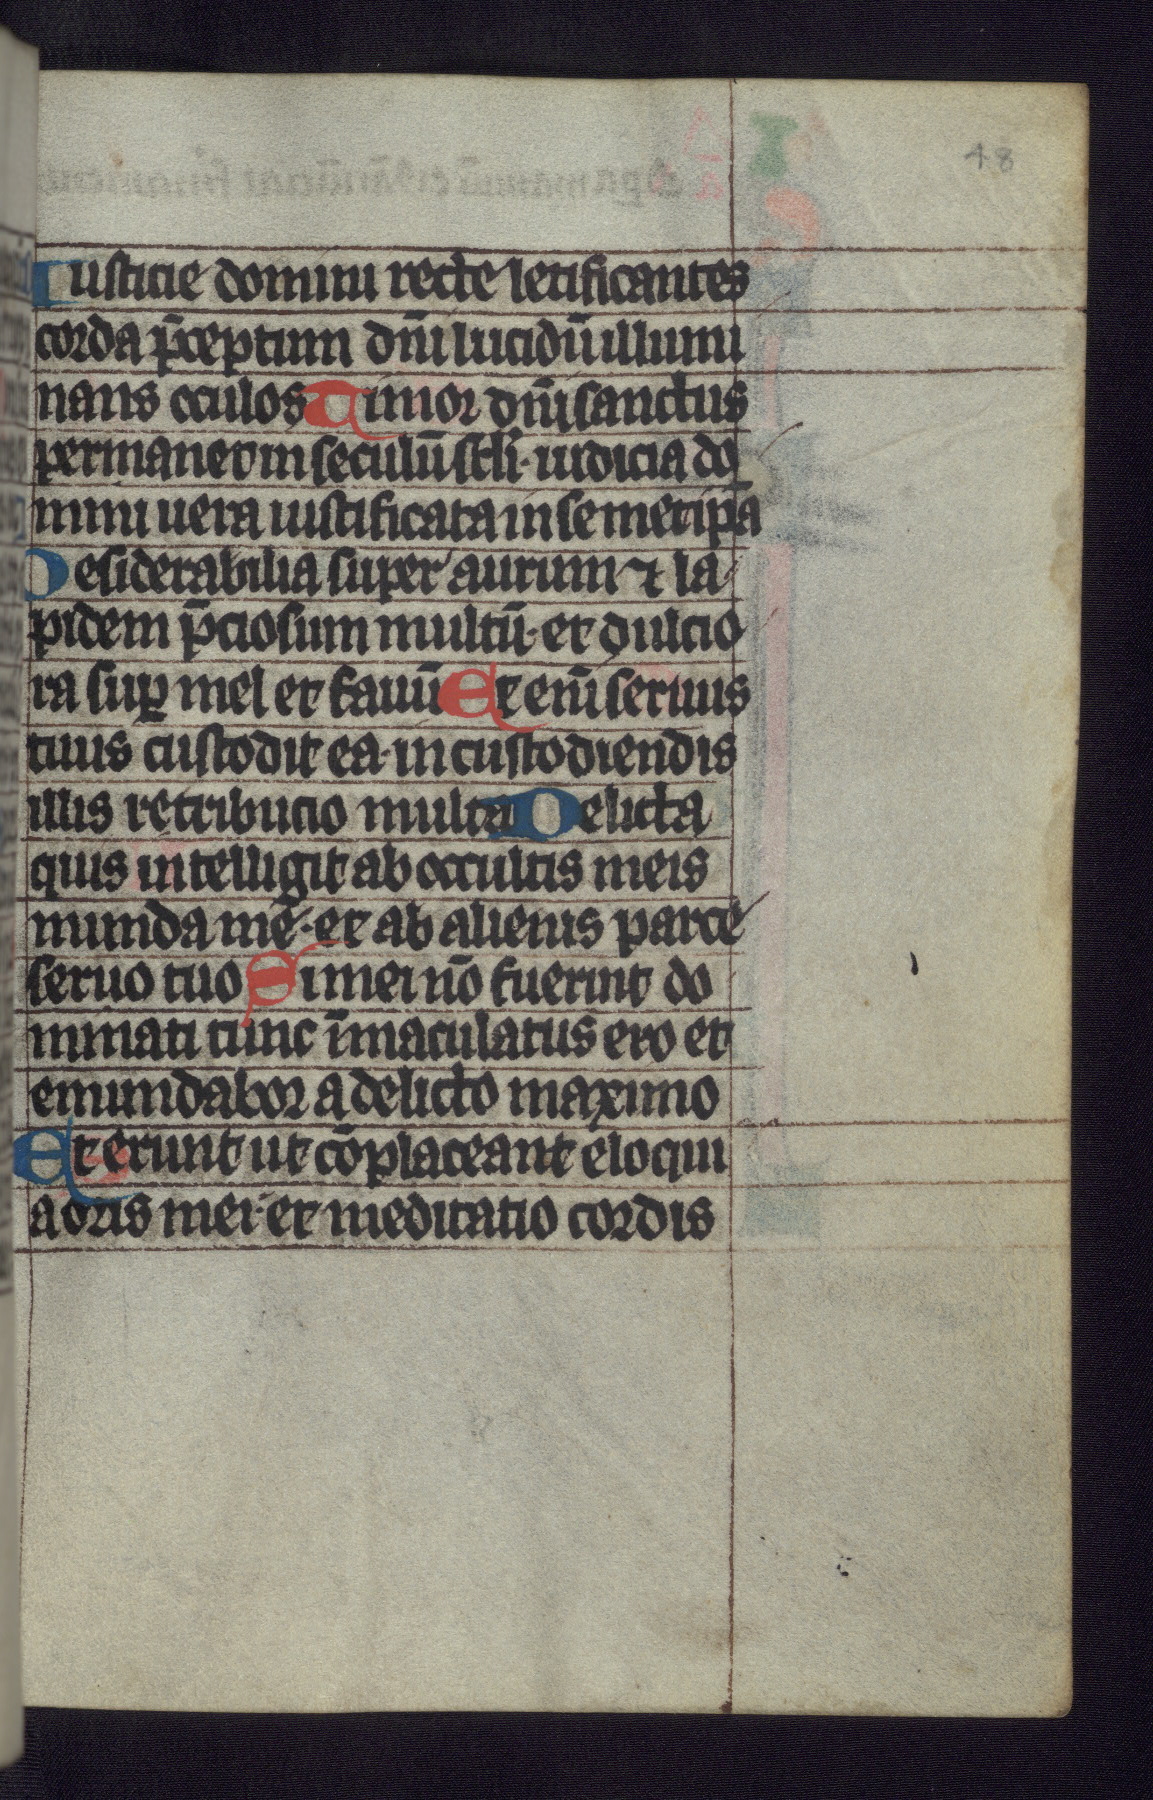 48
Iusticie domini recte letificantes
corda p̄ceptum dn̄i lucidū illumi
nans oculos Timor dn̄i sanctus
permanet in seculū sc̄li· iudicia do
mini uera iustificata in semetip̄a
Desiderabilia super aurum ⁊ la
pidem p̄ciosum multū· et dulcio
ra suꝑ mel et fauū Et eni̅ seruus
tuus custodit ea· in custodiendis
illis retribucio multa Delicta
quis intelligit ab occultis meis
munda me· et ab alienis parce
seruo tuo Si mei nō fuerint do
minati tunc īmaculatus ero et
emundabor a delicto maximo
Et erunt ut cōplaceant eloqui
a oris mei· et meditatio cordis